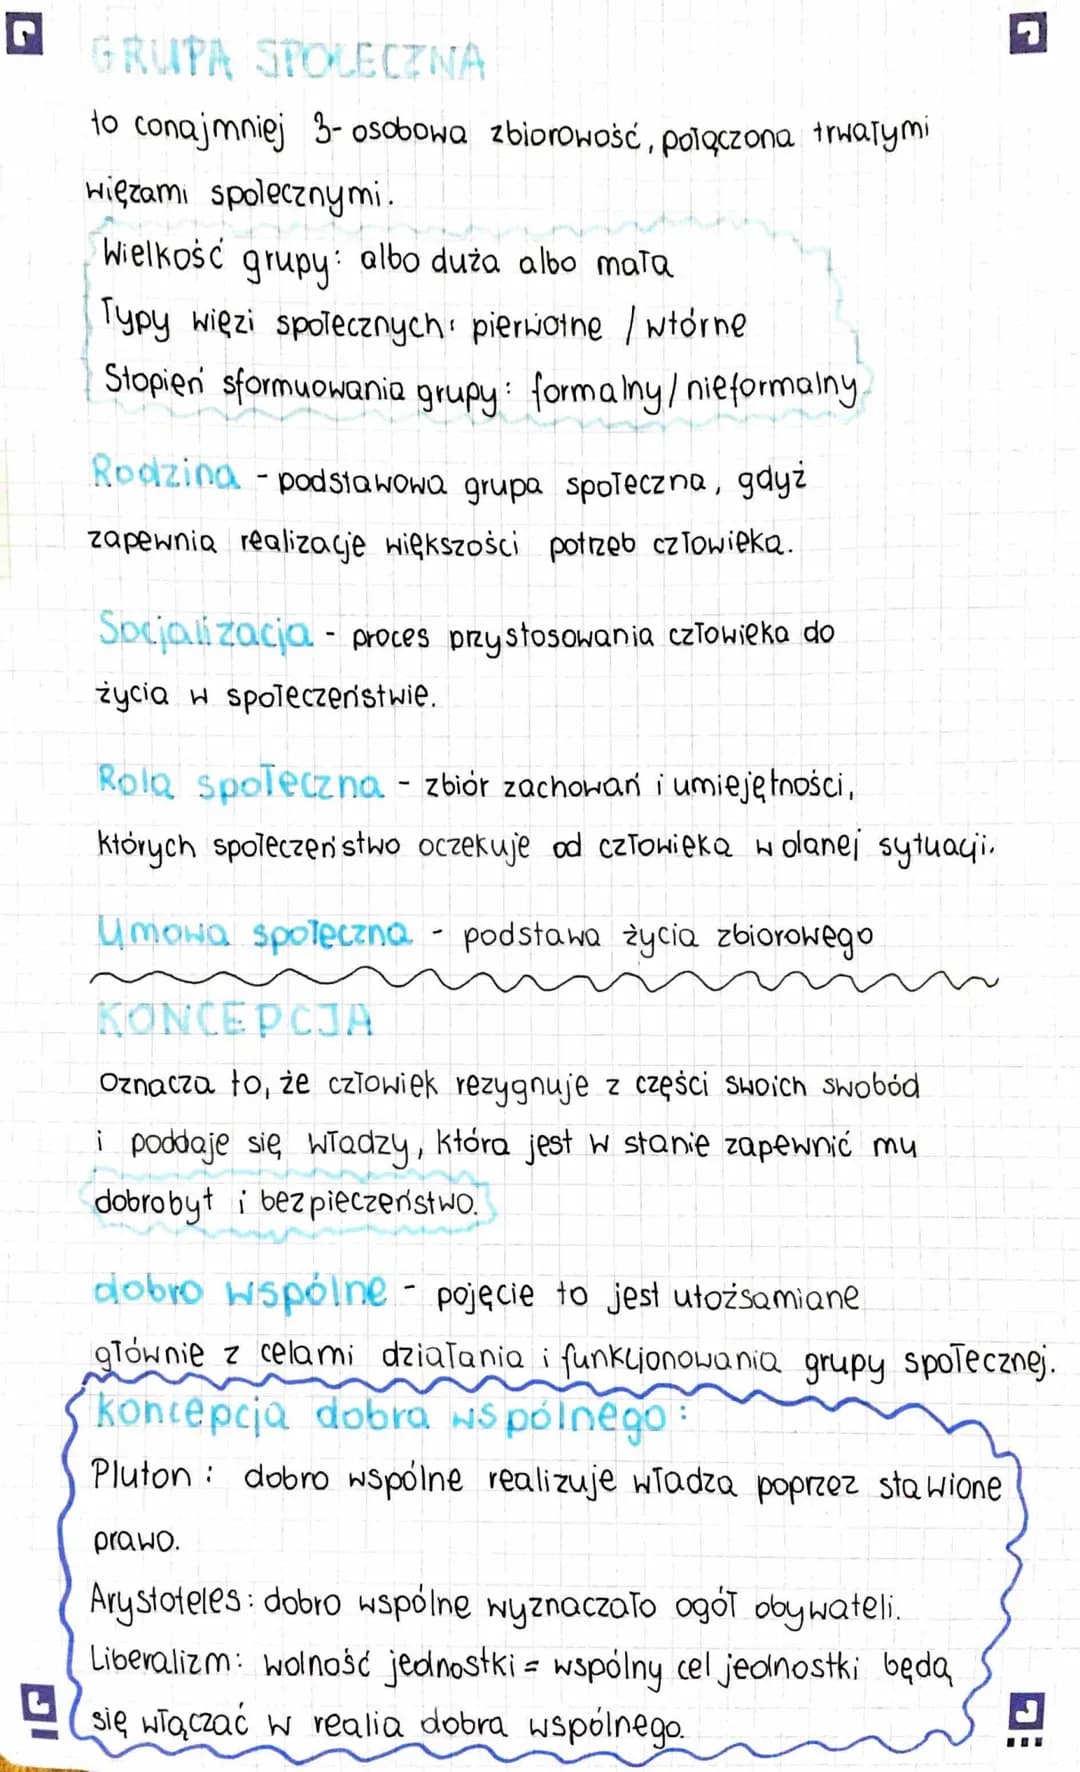 GRUPA SPOŁECZNA
to conajmniej 3-osobowa zbiorowość, połączona trwałymi
więzami społecznymi.
Wielkość grupy: albo duża albo mała
Typy więzi społecznych: pierwotne / wtórne
Stopień sformuowania grupy: formalny/nieformalny
Rodzina - podstawowa grupa społeczna, gdyż
zapewnia realizacje większości potrzeb człowieka.
Socjalizacja - proces przystosowania człowieka do
życia w społeczeństwie.
Rola społeczna - zbiór zachowań i umiejętności,
których społeczeństwo oczekuje od człowieka w danej sytuacji.
Umowa społeczna - podstawa życia zbiorowego
KONCEPCJA
Oznacza to, że człowiek rezygnuje z części swoich swobód
i poddaje się władzy, która jest w stanie zapewnić mu
dobrobyt i bezpieczeństwo.
dobro wspólne - pojęcie to jest utożsamiane
głównie z celami działania i funkcjonowania grupy społecznej.
koncepcja dobra wspólnego:
Pluton: dobro wspólne realizuje władza poprzez stawione
prawo.
Arystoteles: dobro wspólne wyznaczało ogół obywateli.
Liberalizm: wolność jednostki = wspólny cel jednostki będą
się włączać w realia dobra wspólnego.